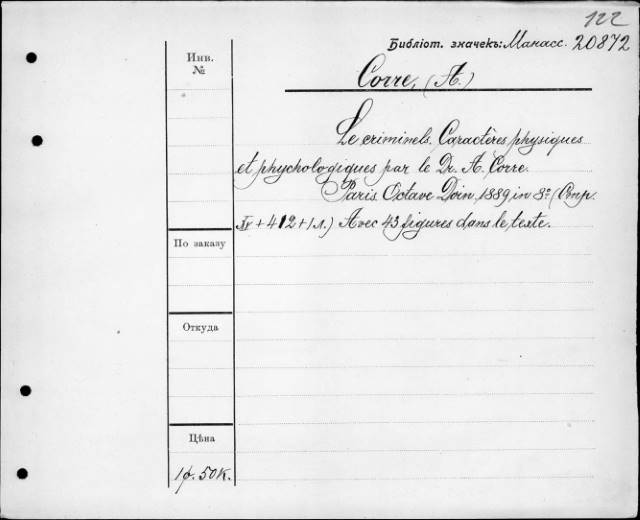 122
Библіот. значекъ: Манасс. 20872
Инв.
№
Corre, (A.)
Le criminels. Caractères physiques
et phychologiques par le Dr. A. Corre.
Paris. Octave Doin, 1889, in 8º. (
XV + 412 + 1 л.) Avec 43 figures dans le texte.
По заказу
Откуда
Цѣна
1 р. 50 к.